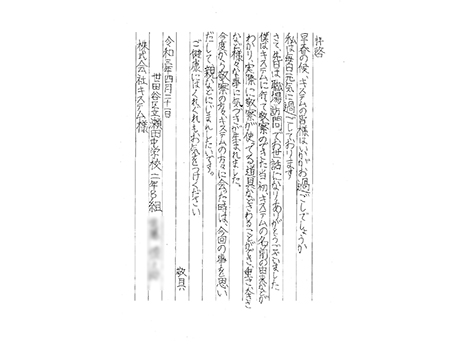 拝啓
早春の候、キステムの皆様はいかがお過ごしでしょうか
私は毎日元気に過ごしております
さて、先日は職場訪問でお世話になりありがとうございました
僕はキステムに行って警察のできた当初、キステムの名前の由来などが
わかり、実際に警察が使ってる道具などさわることができ、重さ、大きさ
など様々な事に気づきが生まれました。
今度から警察の方、キステムの方々に会った時は、今回の事を思い
だして親しくなじましたいです。
ご健康にはくれぐれもお気をつけください
敬具
令和三年四月二十一日
世田谷区立瀬田中学校二年B組
株式会社キステム様